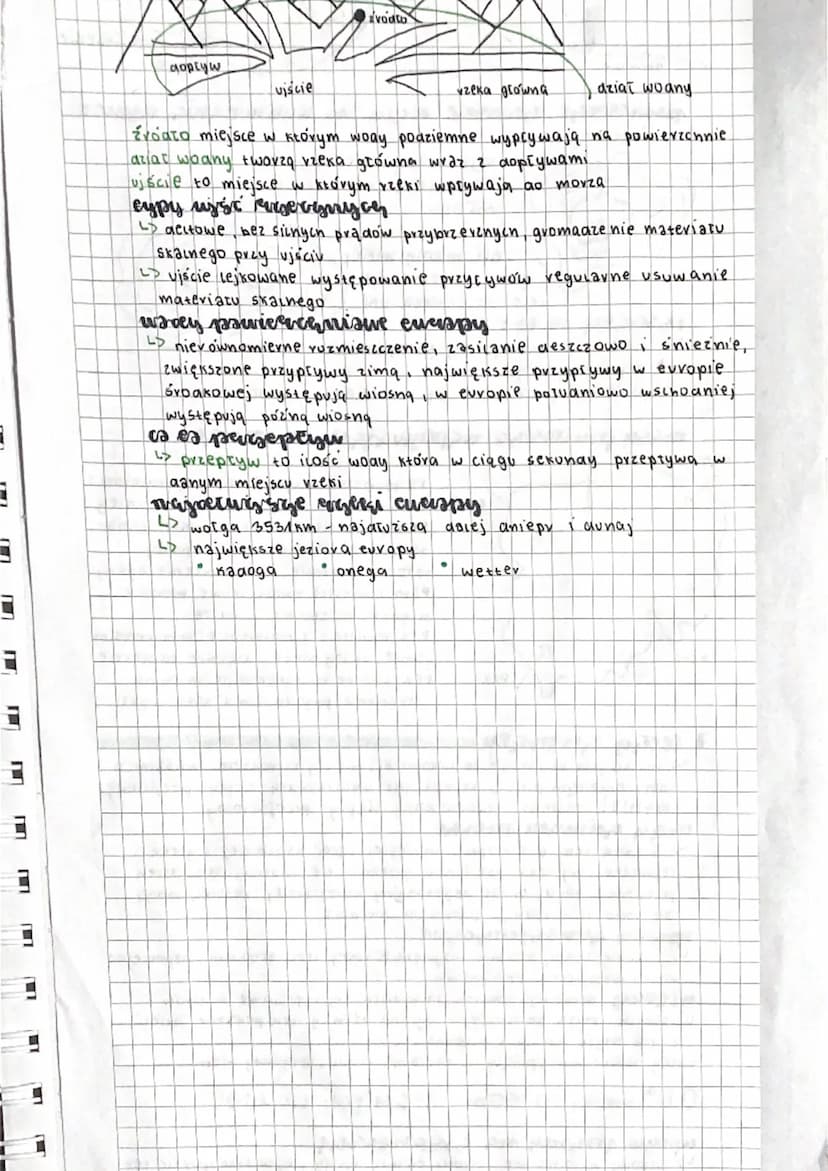 źródło
dopływ
ujście
rzeka główna
dział wodny
źródło miejsce w którym wody podziemne wypływają na powierzchnie
dział wodny tworzą rzeka główna wraz z dopływami
ujście to miejsce w którym rzeki wpływają do morza
typy ujść rzecznych
↳ deltowe, bez silnych prądów przybrzeżnych, gromadzenie materiału
skalnego przy ujściu
↳ ujście lejkowane występowanie przypływów regularne usuwanie
materiału skalnego
wody powierzchniowe europy
↳ nierównomierne rozmieszczenie, zasilanie deszczowo i śnieżnie,
zwiększone przypływy zimą, największe przypływy w europie
środkowej występują wiosną, w europie południowo wschodniej
występują późną wiosną
co to przepływ
↳ przepływ to ilość wody która w ciągu sekundy przepływa w
danym miejscu rzeki
najdłuższe rzeki europy
↳ wołga 3531km - najdłuższa dalej dniepr i dunaj
↳ największe jeziora europy
• ładoga • onega • wetter